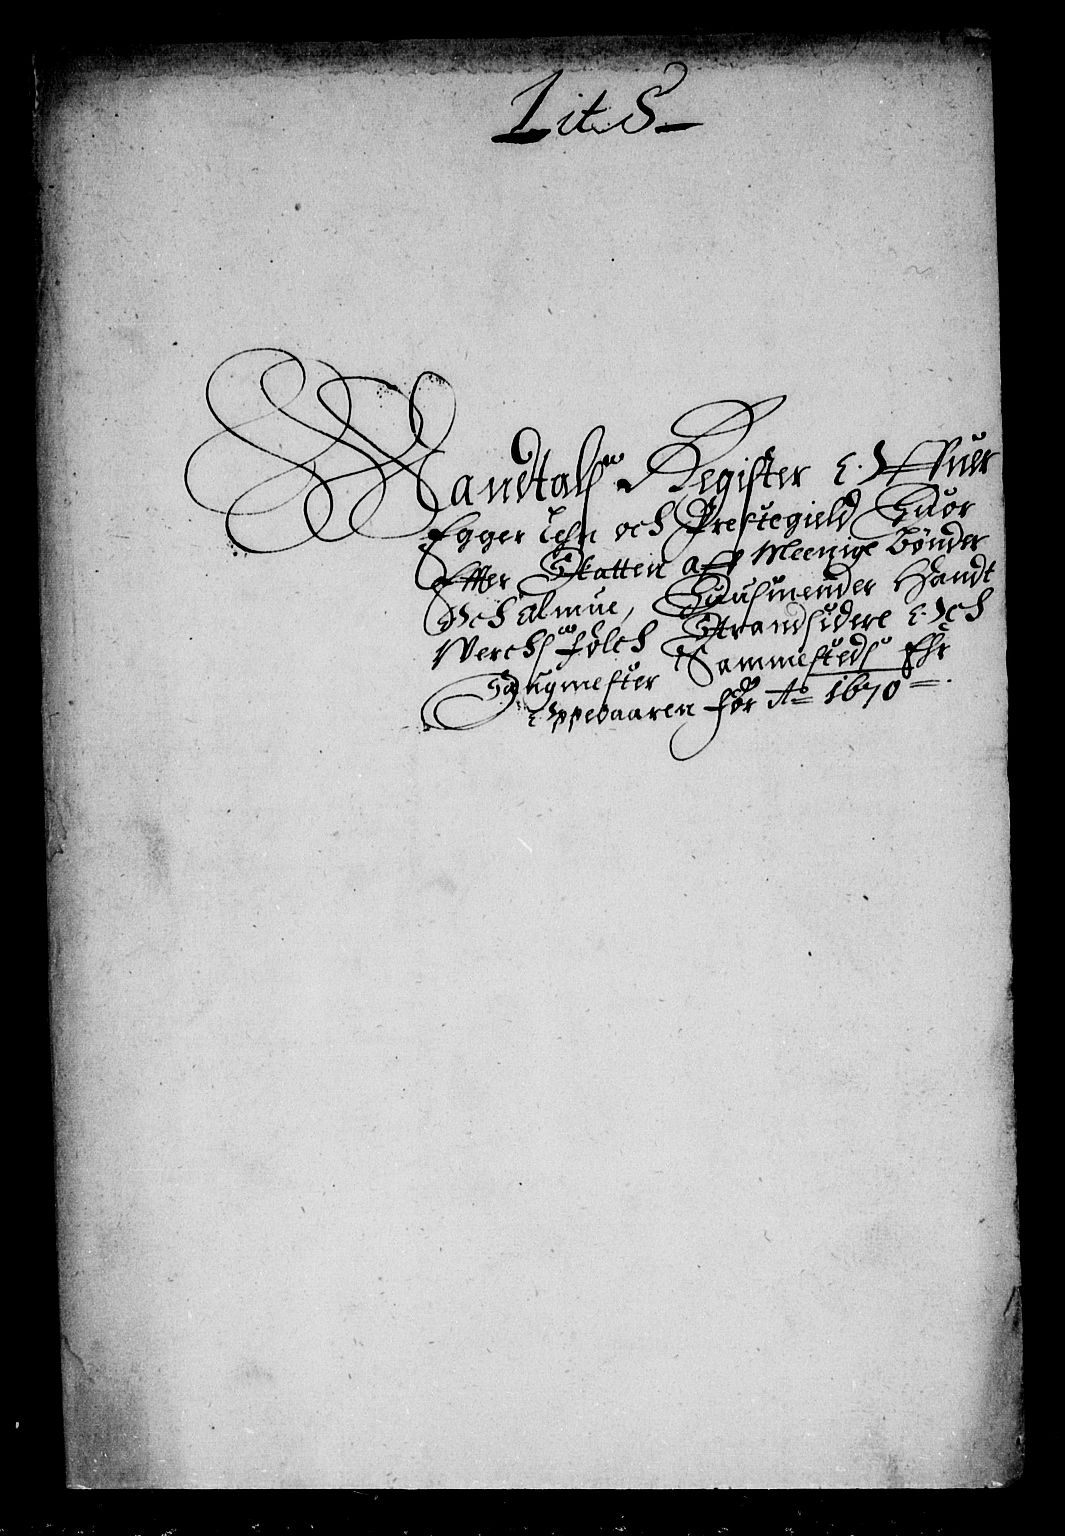 Lit. S
Mandtals Register Offuer
Egger Lehn och Prestegield Huor
Effter Skatten aff Meenige Bønder
Och Almue, Huusmender Handt
Verchs folch Strandsidere Och
Sagmester Sammesteds Ehr
Oppebaaren for Ao 1670